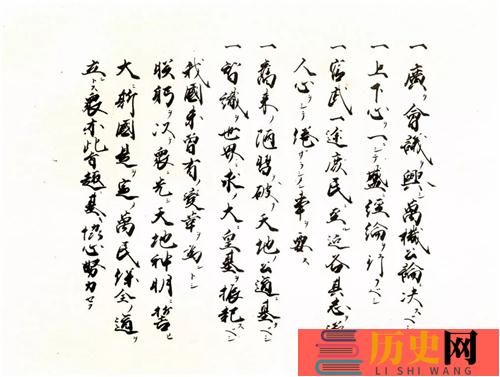 一廣ク會議ヲ興シ萬機公論ニ決スベシ
一上下心ヲ一ニシテ盛ニ經綸ヲ行フベシ
一官武一途庶民ニ至ル迄各其志ヲ遂ケ
人心ヲシテ倦マザラシメン事ヲ要ス
一舊来ノ陋習ヲ破リ天地ノ公道ニ基クベシ
一智識ヲ世界ニ求メ大ニ皇基ヲ振起スベシ
我國未曾有ノ變革ヲ為ントシ
朕躬ヲ以テ衆ニ先ンシ天地神明ニ誓ヒ
大ニ斯國是ヲ定メ萬民保全ノ道ヲ
立ントス衆亦此旨趣ニ基キ協心努力セヨ
历史网
LI SHI WANG